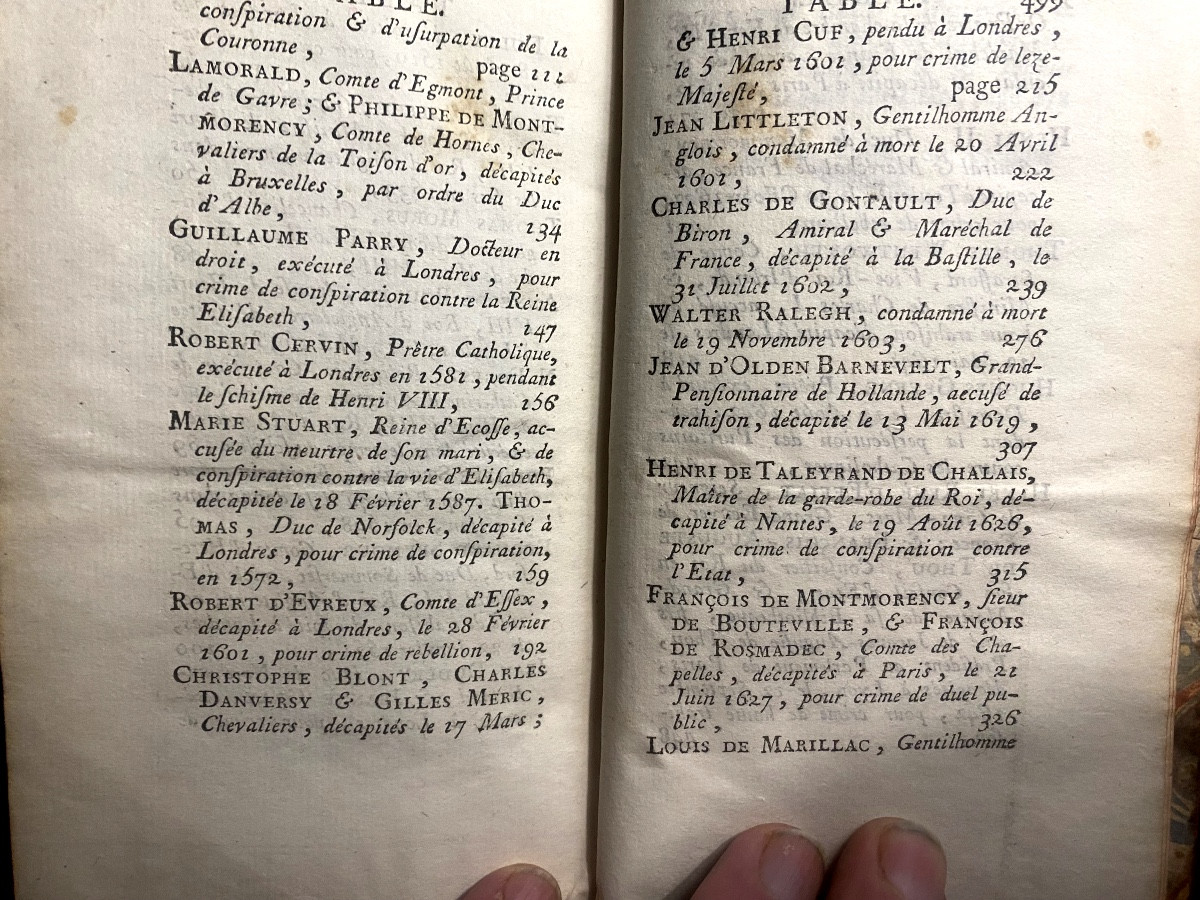 TABLE.
conſpiration & d'uſurpation de la
Couronne, page 111
LAMORALD, Comte d'Egmont, Prince
de Gavre; & PHILIPPE DE MONT-
MORENCY, Comte de Hornes, Che-
valiers de la Toiſon d'or, décapités
à Bruxelles, par ordre du Duc
d'Albe, 134
GUILLAUME PARRY, Docteur en
droit, exécuté à Londres, pour
crime de conſpiration contre la Reine
Eliſabeth, 147
ROBERT CERVIN, Prêtre Catholique,
exécuté à Londres en 1581, pendant
le ſchiſme de Henri VIII, 156
MARIE STUART, Reine d'Ecoſſe, ac-
cuſée du meurtre de ſon mari, & de
conſpiration contre la vie d'Eliſabeth,
décapitée le 18 Février 1587. THO-
MAS, Duc de Norfolck, décapité à
Londres, pour crime de conſpiration,
en 1572, 159
ROBERT D'EVREUX, Comte d'Eſſex,
décapité à Londres, le 28 Février
1601, pour crime de rébellion, 192
CHRISTOPHE BLONT, CHARLES
DANVERSY & GILLES MERIC,
Chevaliers, décapités le 17 Mars;
TABLE. 499
& HENRI CUF, pendu à Londres,
le 5 Mars 1601, pour crime de leze-
Majeſté, page 215
JEAN LITTLETON, Gentilhomme An-
glois, condamné à mort le 20 Avril
1601, 222
CHARLES DE GONTAULT, Duc de
Biron, Amiral & Maréchal de
France, décapité à la Baſtille, le
31 Juillet 1602, 239
WALTER RALEGH, condamné à mort
le 19 Novembre 1603, 276
JEAN D'OLDEN BARNEVELT, Grand-
Penſionnaire de Hollande, aecuſé de
trahiſon, décapité le 13 Mai 1619,
307
HENRI DE TALEYRAND DE CHALAIS,
Maître de la garde-robe du Roi, dé-
capité à Nantes, le 19 Août 1626,
pour crime de conſpiration contre
l'Etat, 315
FRANÇOIS DE MONTMORENCY, ſieur
DE BOUTEVILLE, & FRANÇOIS
DE ROSMADEC, Comte des Cha-
pelles, décapités à Paris, le 21
Juin 1627, pour crime de duel pu-
blic, 326
LOUIS DE MARILLAC, Gentilhomme